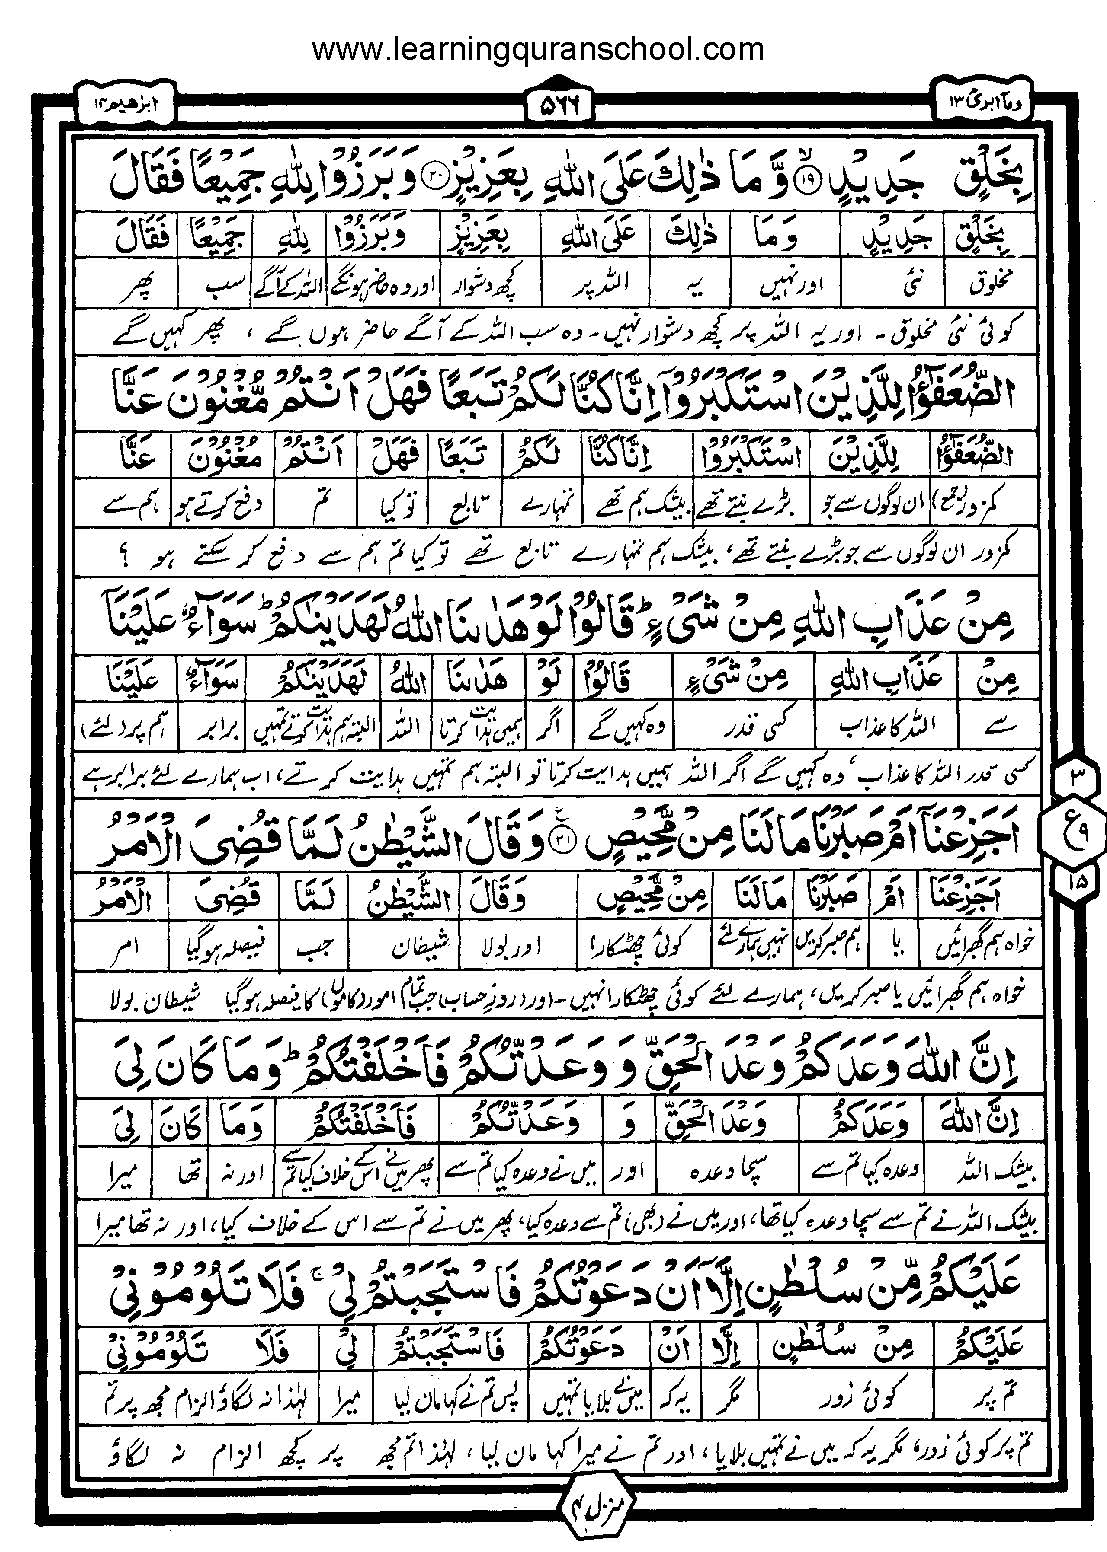 www.learningquranschool.com
وما ابرئ ۱۳
۵۶۶
ابرٰهیم ۱۴
بِخَلْقٍ جَدِيْدٍۙ۱۹ وَّمَا ذٰلِكَ عَلَى اللّٰهِ بِعَزِيْزٍ۲۰ وَبَرَزُوْا لِلّٰهِ جَمِيْعًا فَقَالَ
بِخَلْقٍ جَدِيْدٍ وَمَا ذٰلِكَ عَلَى اللّٰهِ بِعَزِيْزٍ وَبَرَزُوْا لِلّٰهِ جَمِيْعًا فَقَالَ
مخلوق نئی اور نہیں یہ اللہ پر کچھ دشوار اور وہ حاضر ہونگے اللہ کے آگے سب پھر
کوئی نئی مخلوق ۔ اور یہ اللہ پر کچھ دشوار نہیں ۔ وہ سب اللہ کے آگے حاضر ہوں گے ، پھر کہیں گے
الضُّعَفٰٓؤُا لِلَّذِيْنَ اسْتَكْبَرُوْٓا اِنَّا كُنَّا لَكُمْ تَبَعًا فَهَلْ اَنْتُمْ مُّغْنُوْنَ عَنَّا
الضُّعَفٰٓؤُا لِلَّذِيْنَ اسْتَكْبَرُوْا اِنَّا كُنَّا لَكُمْ تَبَعًا فَهَلْ اَنْتُمْ مُغْنُوْنَ عَنَّا
کمزور (جمع) ان لوگوں سے جو بڑے بنتے تھے بیشک ہم تھے تمہارے تابع تو کیا تم دفع کرتے ہو ہم سے
کمزور ان لوگوں سے جو بڑے بنتے تھے، بیشک ہم تمہارے تابع تھے تو کیا تم ہم سے دفع کر سکتے ہو ؟
مِنْ عَذَابِ اللّٰهِ مِنْ شَيْءٍؕ قَالُوْا لَوْ هَدٰىنَا اللّٰهُ لَهَدَيْنٰكُمْؕ سَوَآءٌ عَلَيْنَآ
مِنْ عَذَابِ اللّٰهِ مِنْ شَيْءٍ قَالُوْا لَوْ هَدٰىنَا اللّٰهُ لَهَدَيْنٰكُمْ سَوَآءٌ عَلَيْنَا
سے اللہ کا عذاب کسی قدر وہ کہیں گے اگر ہمیں ہدایت کرتا اللہ البتہ ہم ہدایت کرتے تمہیں برابر ہم پر (لئے)
کسی قدر اللہ کا عذاب ، وہ کہیں گے اگر اللہ ہمیں ہدایت کرتا تو البتہ ہم تمہیں ہدایت کرتے، اب ہمارے لئے برابر ہے
۳
ع
۹
۱۵
اَجَزِعْنَآ اَمْ صَبَرْنَا مَا لَنَا مِنْ مَّحِيْصٍ۲۱ع وَقَالَ الشَّيْطٰنُ لَمَّا قُضِيَ الْاَمْرُ
اَجَزِعْنَا اَمْ صَبَرْنَا مَا لَنَا مِنْ مَّحِيْصٍ وَقَالَ الشَّيْطٰنُ لَمَّا قُضِيَ الْاَمْرُ
خواہ ہم گھبرائیں یا ہم صبر کریں نہیں ہمارے لئے کوئی چھٹکارا اور بولا شیطان جب فیصلہ ہو گیا امر
خواہ ہم گھبرائیں یا صبر کریں، ہمارے لئے کوئی چھٹکارا نہیں ۔ اور (روز حساب) جب تمام امور (کاموں) کا فیصلہ ہو گیا شیطان بولا
اِنَّ اللّٰهَ وَعَدَكُمْ وَعْدَ الْحَقِّ وَ وَعَدْتُّكُمْ فَاَخْلَفْتُكُمْؕ وَمَا كَانَ لِيَ
اِنَّ اللّٰهَ وَعَدَكُمْ وَعْدَ الْحَقِّ وَ وَعَدْتُّكُمْ فَاَخْلَفْتُكُمْ وَمَا كَانَ لِيَ
بیشک اللہ وعدہ کیا تم سے سچا وعدہ اور میں نے وعدہ کیا تم سے پھر میں نے اس کے خلاف کیا تم سے اور نہ تھا میرا
بیشک اللہ نے تم سے سچا وعدہ کیا تھا، اور میں نے (بھی) تم سے وعدہ کیا، پھر میں نے تم سے اس کے خلاف کیا، اور نہ تھا میرا
عَلَيْكُمْ مِّنْ سُلْطٰنٍ اِلَّآ اَنْ دَعَوْتُكُمْ فَاسْتَجَبْتُمْ لِيْۚ فَلَا تَلُوْمُوْنِيْ
عَلَيْكُمْ مِنْ سُلْطٰنٍ اِلَّا اَنْ دَعَوْتُكُمْ فَاسْتَجَبْتُمْ لِيْ فَلَا تَلُوْمُوْنِيْ
تم پر کوئی زور مگر یہ کہ میں نے بلایا تمہیں پس تم نے کہا مان لیا میرا لہٰذا نہ لگاؤ الزام مجھ پر تم
تم پر کوئی زور، مگر یہ کہ میں نے تمہیں بلایا ، اور تم نے میرا کہا مان لیا ، لہٰذا تم مجھ پر کچھ الزام نہ لگاؤ
منزل ۳